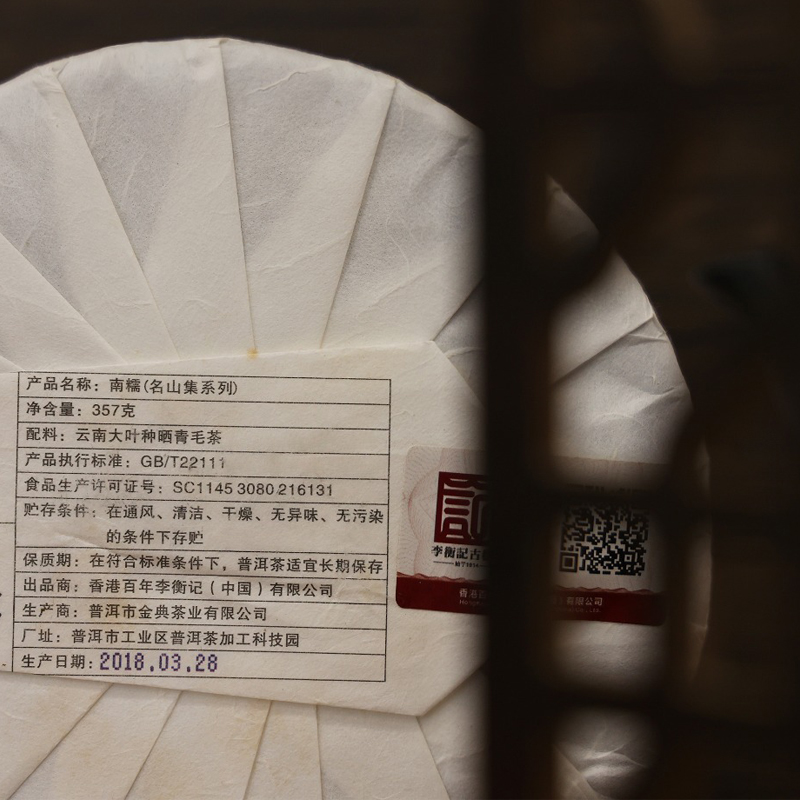 产品名称：南糯(名山集系列)
净含量：357克
配料：云南大叶种晒青毛茶
产品执行标准：GB/T22111
食品生产许可证号：SC1145 3080 216131
贮存条件：在通风、清洁、干燥、无异味、无污染
的条件下存贮
保质期：在符合标准条件下，普洱茶适宜长期保存
出品商：香港百年李衡记（中国）有限公司
生产商：普洱市金典茶业有限公司
厂址：普洱市工业区普洱茶加工科技园
生产日期：2018.03.28
記
李衡記古
香港
有限公司